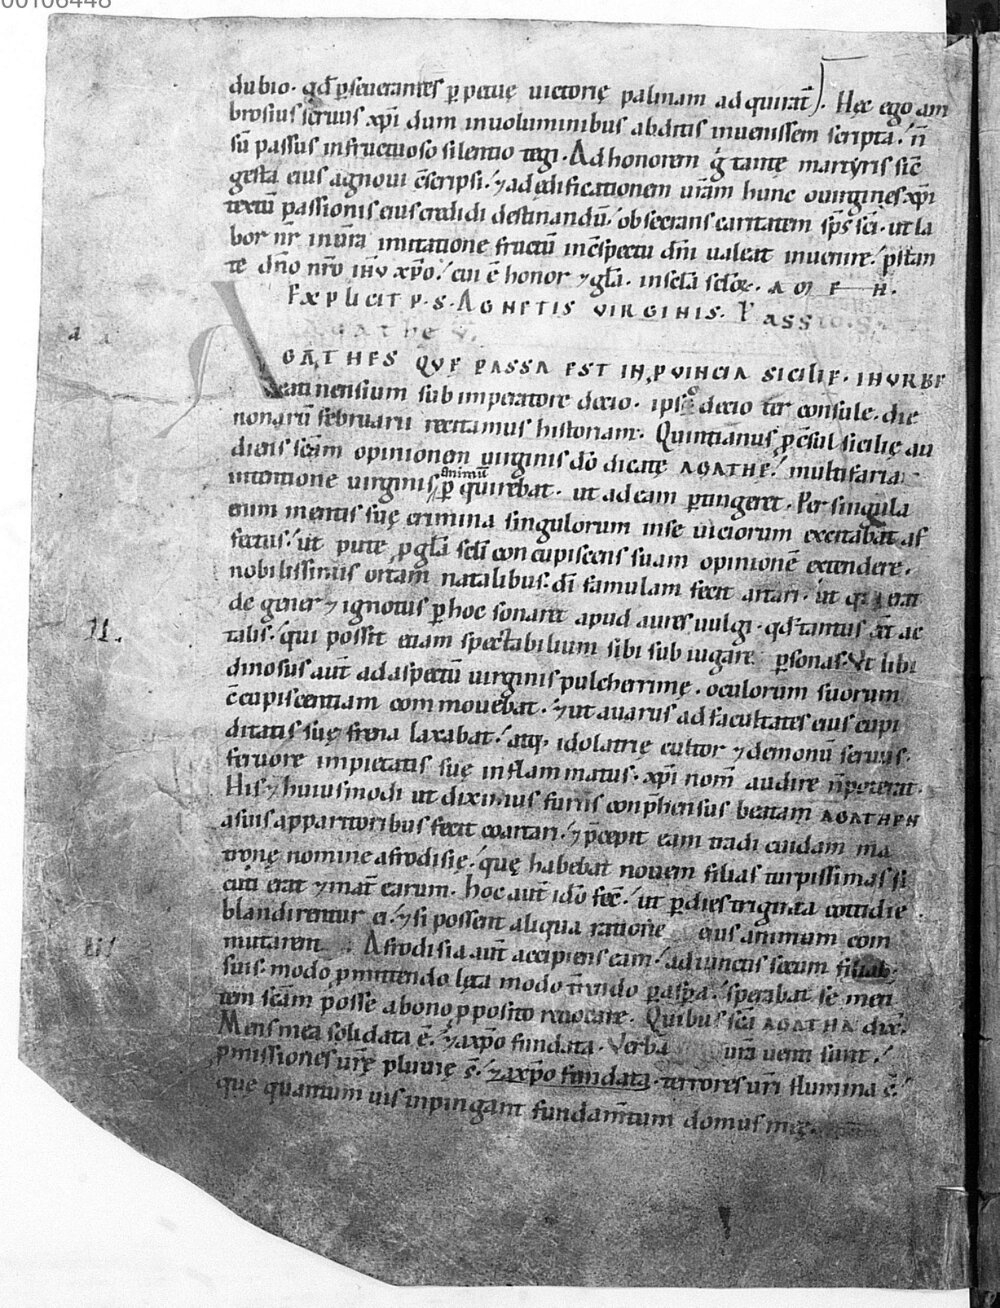 00106448
dubio. qđ p̱seuerantes p̱petuę uictorię palmam adquirat̄). Hęc ego am
brosius seruus xp̄i dum inuoluminibus abditis inuenissem scripta. n̄
sū passus infructuoso silentio tegi. Adhonorem g̊ tantę martyris sic̄
gesta eius agnoui c̄scripsi. ⁊adędificationem ur̄am hunc ouirgines xp̄i
textū passionis eius credidi destinandū. obsecrans caritatem sp̄s sc̄i. ut la
bor nr̄ inur̄a imitatione fructū inc̄spectu dn̄i ualeat inuenire. p̄stan
te dn̄o nr̄o ihū xp̄o. cui ē honor ⁊gl̄a. insc̄la sc̄lor̄. AMEN.
EXPLICIT P. S. AGNETIS VIRGINIS. PASSIO. S.
AGATHE V.
AGATHES QVE PASSA EST IN PVINCIA SICILIE. INVRBE
catinensium sub imperatore decio. ipso decio ter consule. die
nonarū februarii recitamus historiam. Quintianus p̱c̄sul sicilię au
diens sc̄am opinionem uirginis dō dicatę AGATHE. multifaria
intentione uirginis animū p̱quirebat. ut adeam p̱tingeret. Per singula
enim mentis suę crimina singulorum inse uiciorum excitabat af
fectus. ut pute p̱gl̄a sc̄li concupiscens suam opinionē extendere.
nobilissimis ortam natalibus. dī famulam fecit artari. ut qui erat
de gener ⁊ ignotus p̱hoc sonaret apud aures uulgi. qđ tantus eēt ac
talis. qui possit etiam spectabilium sibi sub iugare p̱sonas. Vt libi
dinosus aut̄ ad aspectū uirginis pulcherrimę. oculorum suorum
c̄cupiscentiam commouebat. ⁊ut auarus ad facultates eius cupi
ditatis suę frena laxabat. atq; idolatrię cultor ⁊demonū seruus.
feruore impietatis suę inflammatus. xp̄i nom̄ audire n̄poterat.
His ⁊ huiusmodi ut diximus furiis conp̄hensus beatam AGATHEN
asuis apparitoribus fecit coartari. ⁊ p̄cepit eam tradi cuidam ma
tronę nomine afrodisię. quę habebat nouem filias turpissimas si
cuti erat ⁊mat̄ earum. hoc aut̄ idō fec̄. ut p̱dies triginta cottidie
blandirentur ei. ⁊si possent aliqua ratione eius animum com
mutarent. Afrodisia aut̄ accipiens eam. adiunctis secum filiab;
suis. modo p̱mittendo lęta modo t̄rendo p̱asp̱a. sperabat se men
tem sc̄am posse abono p̱posito reuocare. Quibus sc̄a AGATHA dix̄.
Mens mea solidata ē. ⁊axp̄o fundata. Verba ur̄a uenti sunt.
p̱missiones ur̄ę pluuię s̄. ⁊axp̄o fundata. terrores ur̄i flumina s̄.
quę quantum uis inpingant fundam̄tum domus męę.
a
II.
iii